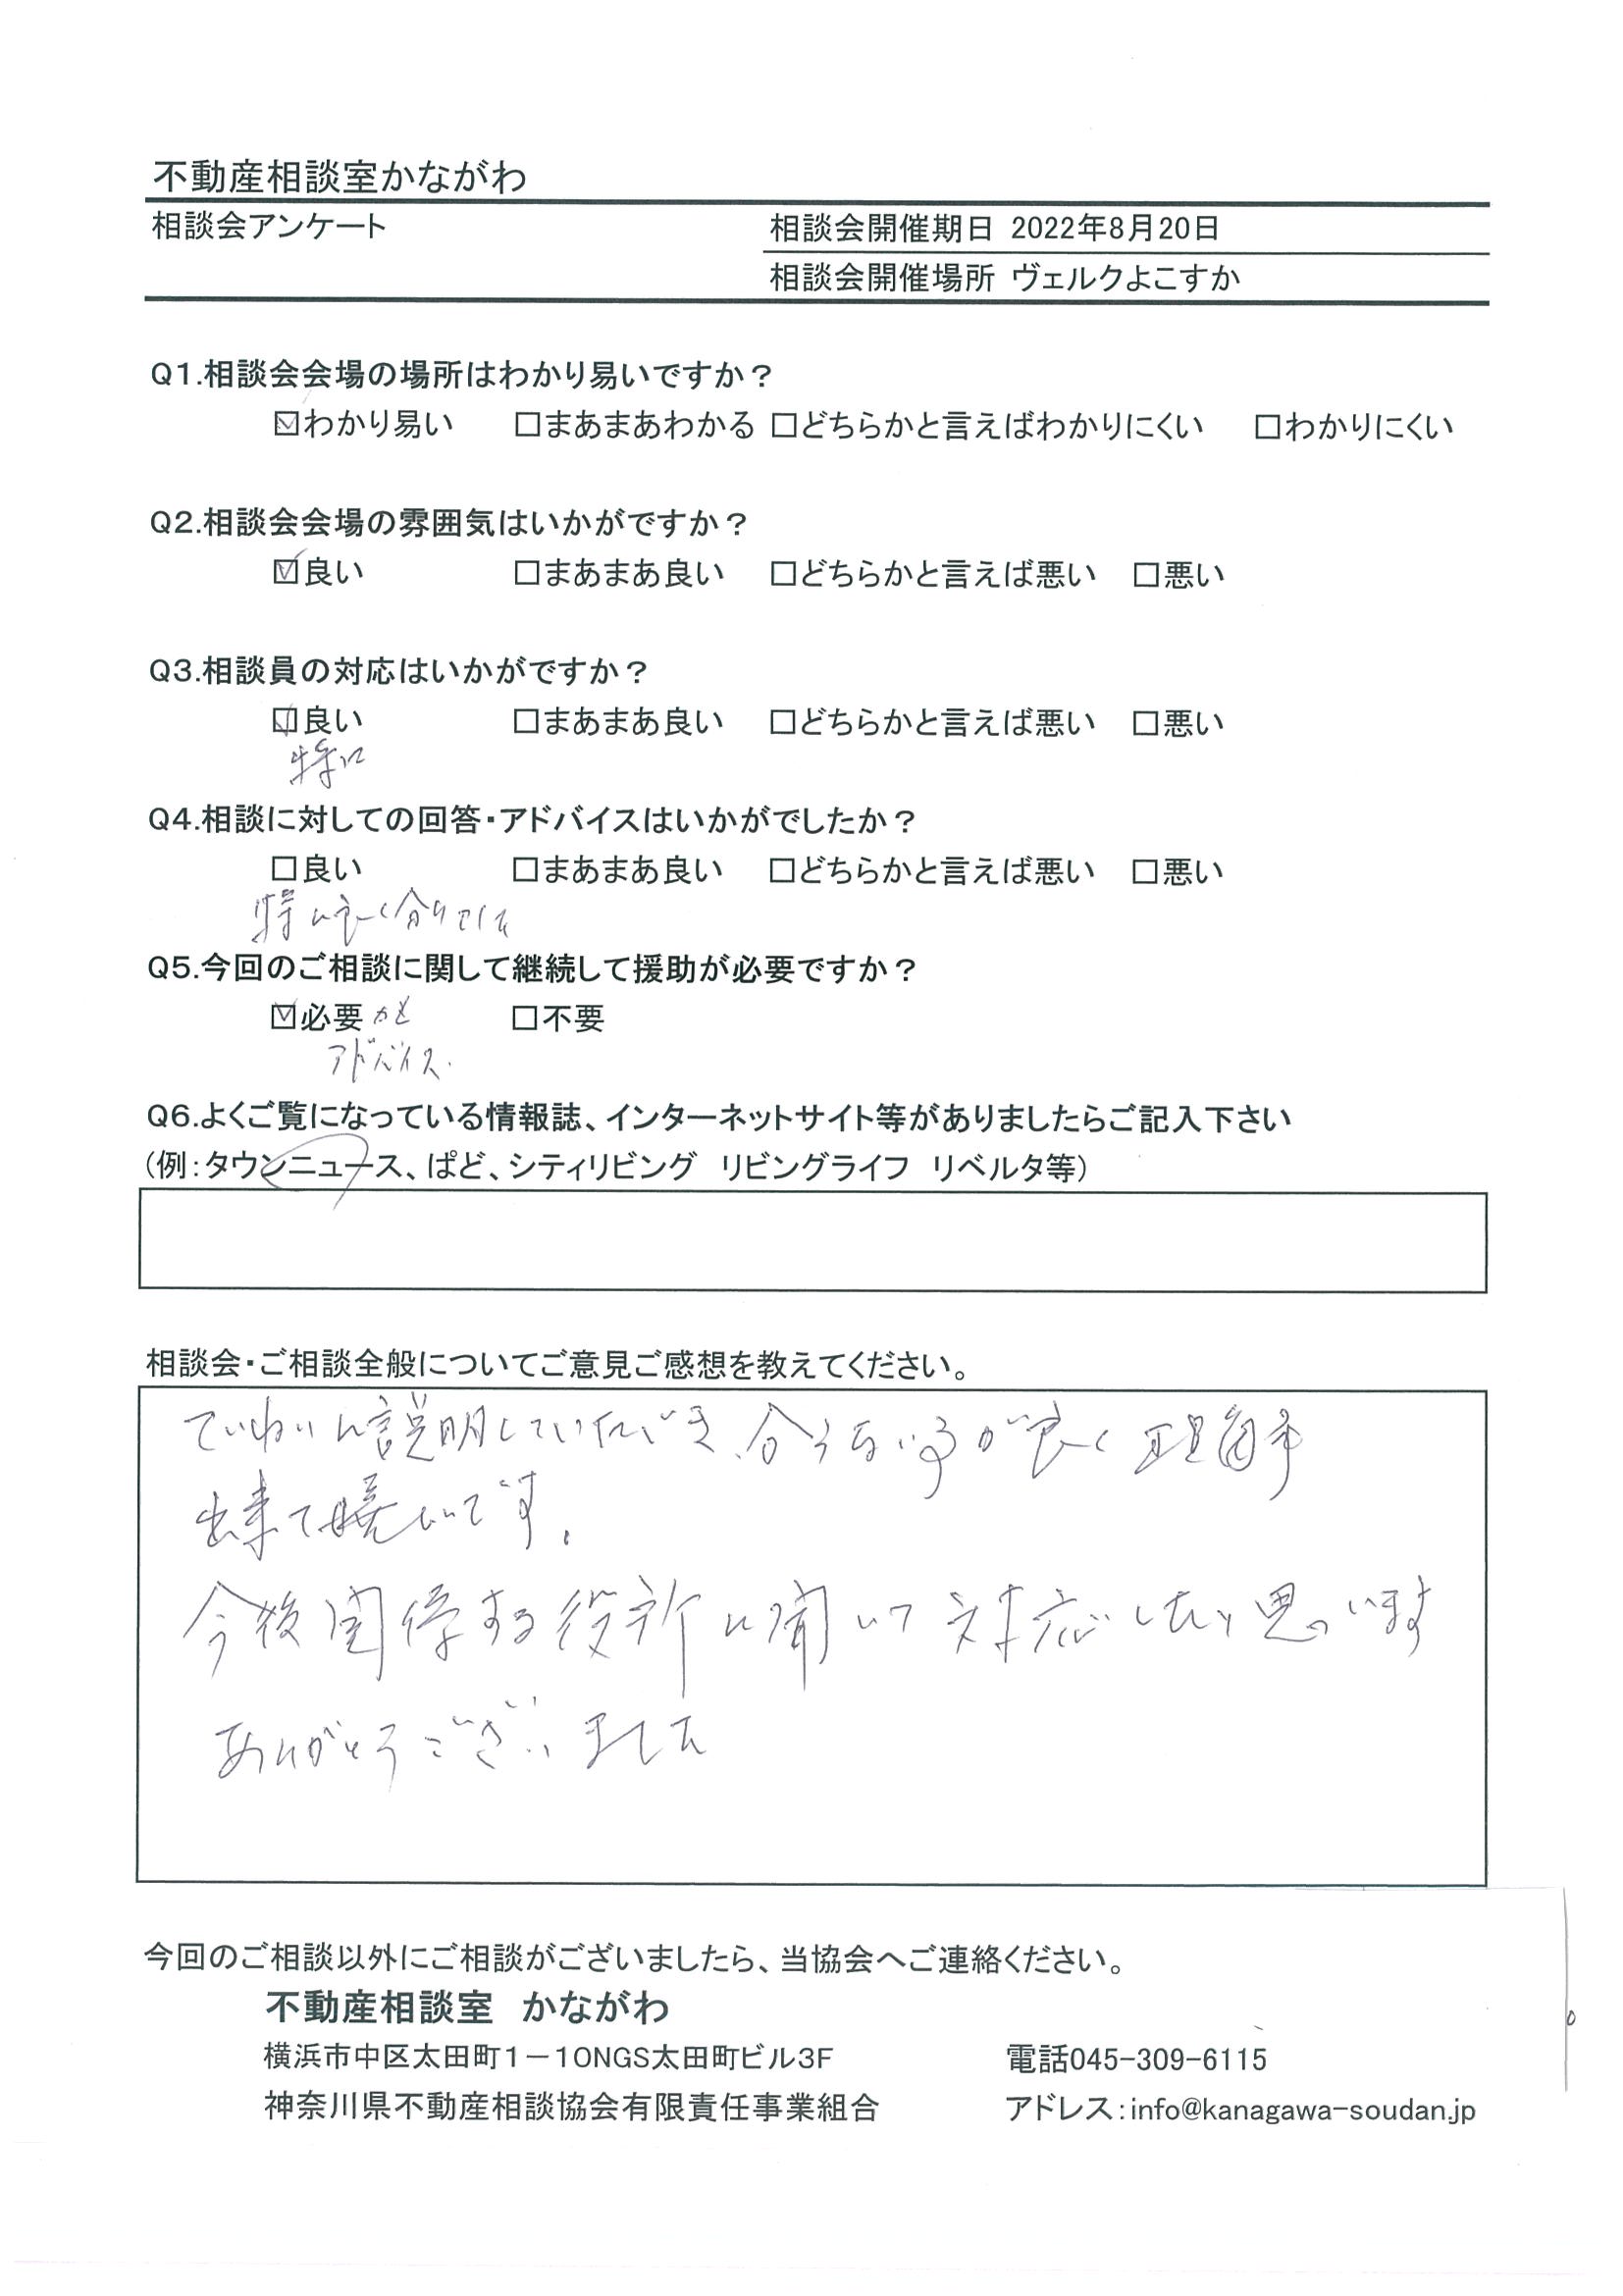 不動産相談室かながわ
相談会アンケート
相談会開催期日 2022年8月20日
相談会開催場所 ヴェルクよこすか
Q1.相談会会場の場所はわかり易いですか？
☑わかり易い □まあまあわかる □どちらかと言えばわかりにくい □わかりにくい
Q2.相談会会場の雰囲気はいかがですか？
☑良い □まあまあ良い □どちらかと言えば悪い □悪い
Q3.相談員の対応はいかがですか？
☑良い □まあまあ良い □どちらかと言えば悪い □悪い
特に
Q4.相談に対しての回答・アドバイスはいかがでしたか？
□良い □まあまあ良い □どちらかと言えば悪い □悪い
特に良く分りました
Q5.今回のご相談に関して継続して援助が必要ですか？
☑必要 かも □不要
アドバイス.
Q6.よくご覧になっている情報誌、インターネットサイト等がありましたらご記入下さい
（例：タウンニュース、ぱど、シティリビング　リビングライフ　リベルタ等）
相談会・ご相談全般についてご意見ご感想を教えてください。
ていねいに説明していただき、分らない事が良く理解
出来て嬉しいです。
今後関係する役所に聞いて対応したいと思います
ありがとうございました
今回のご相談以外にご相談がございましたら、当協会へご連絡ください。
不動産相談室　かながわ
横浜市中区太田町1－10NGS太田町ビル3F 電話045-309-6115
神奈川県不動産相談協会有限責任事業組合 アドレス：info@kanagawa-soudan.jp